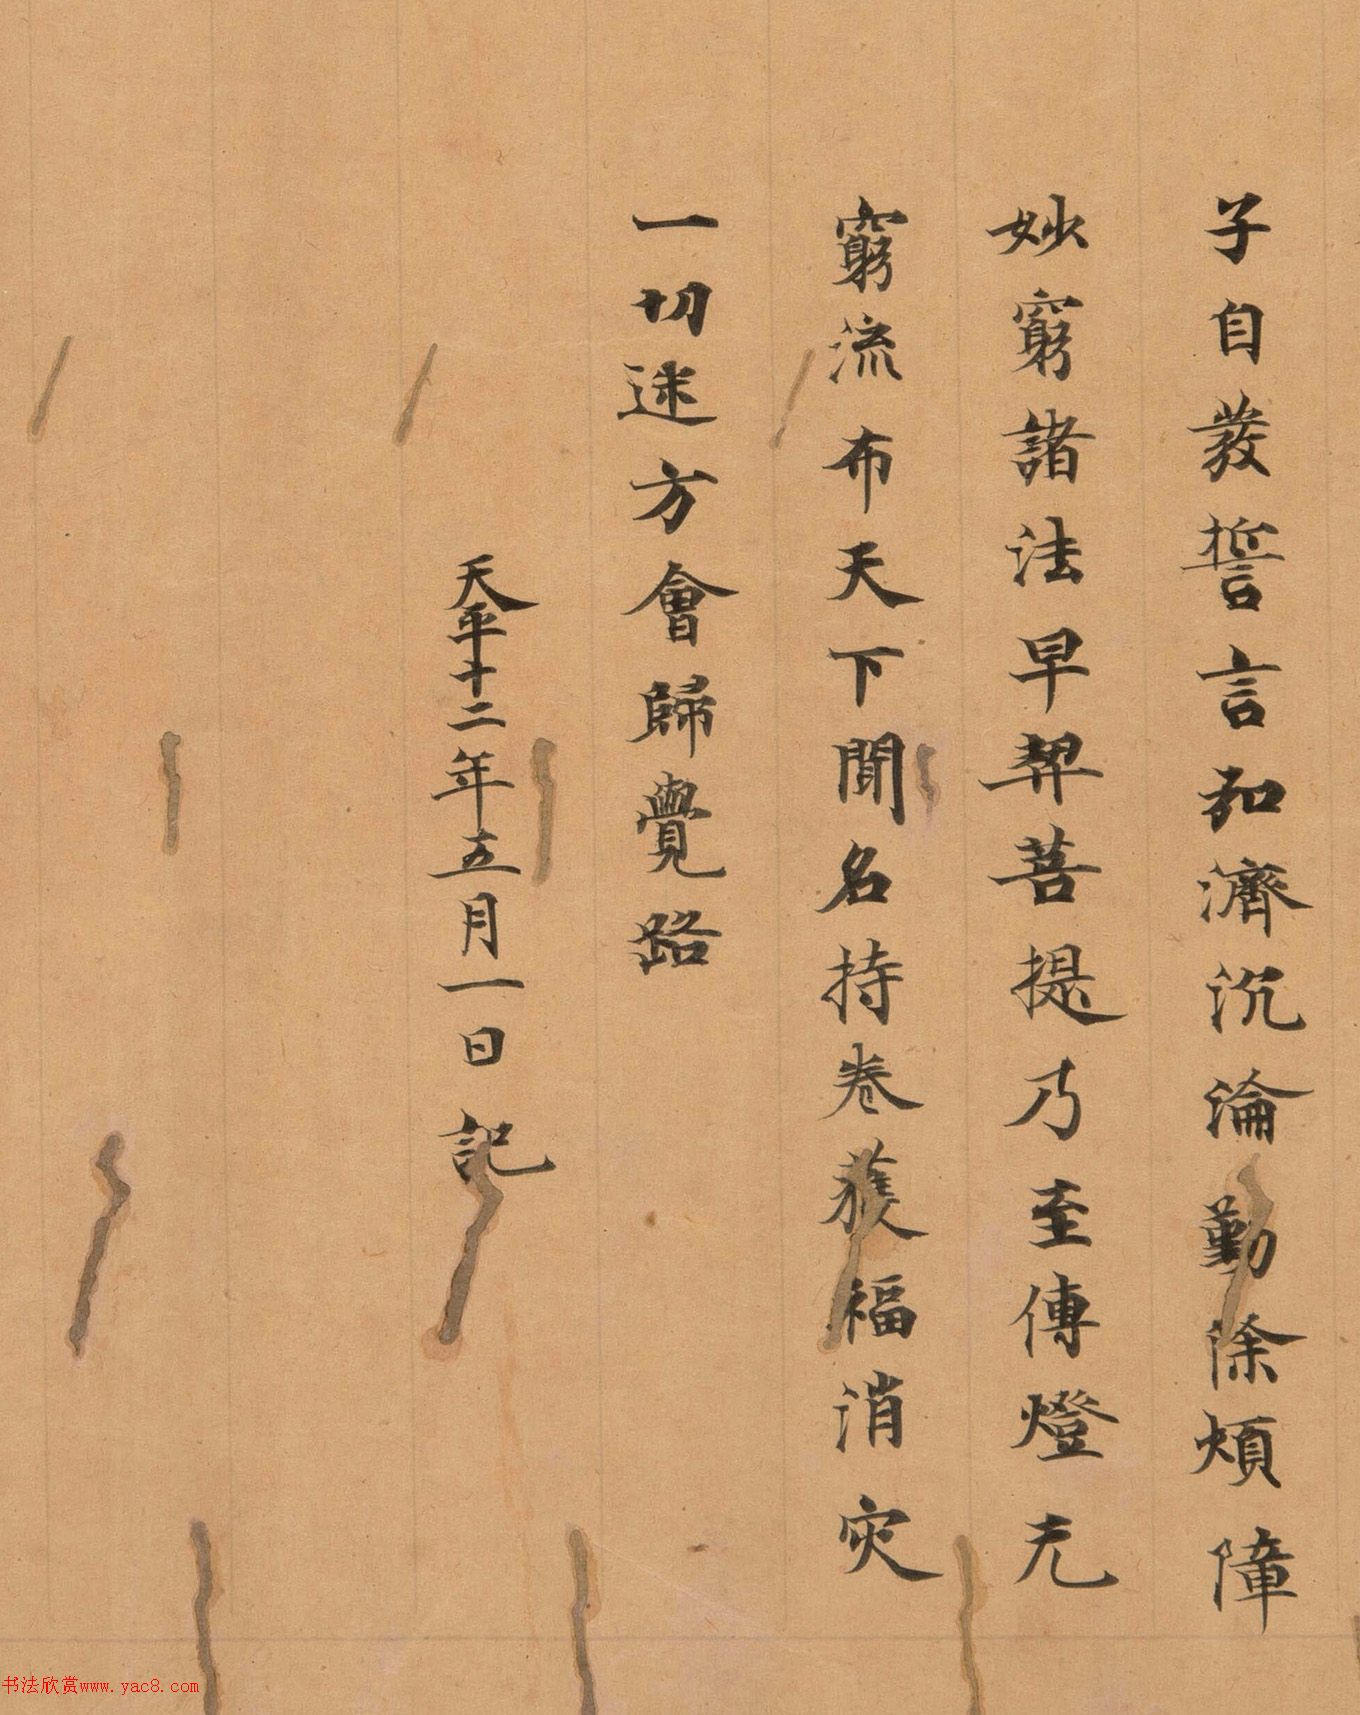 子自發誓言弘濟沉淪勤除煩障
妙窮諸法早契菩提乃至傳燈无
窮流布天下聞名持卷獲福消灾
一切迷方會歸覺路
天平十二年五月一日記
书法欣赏www.yac8.com